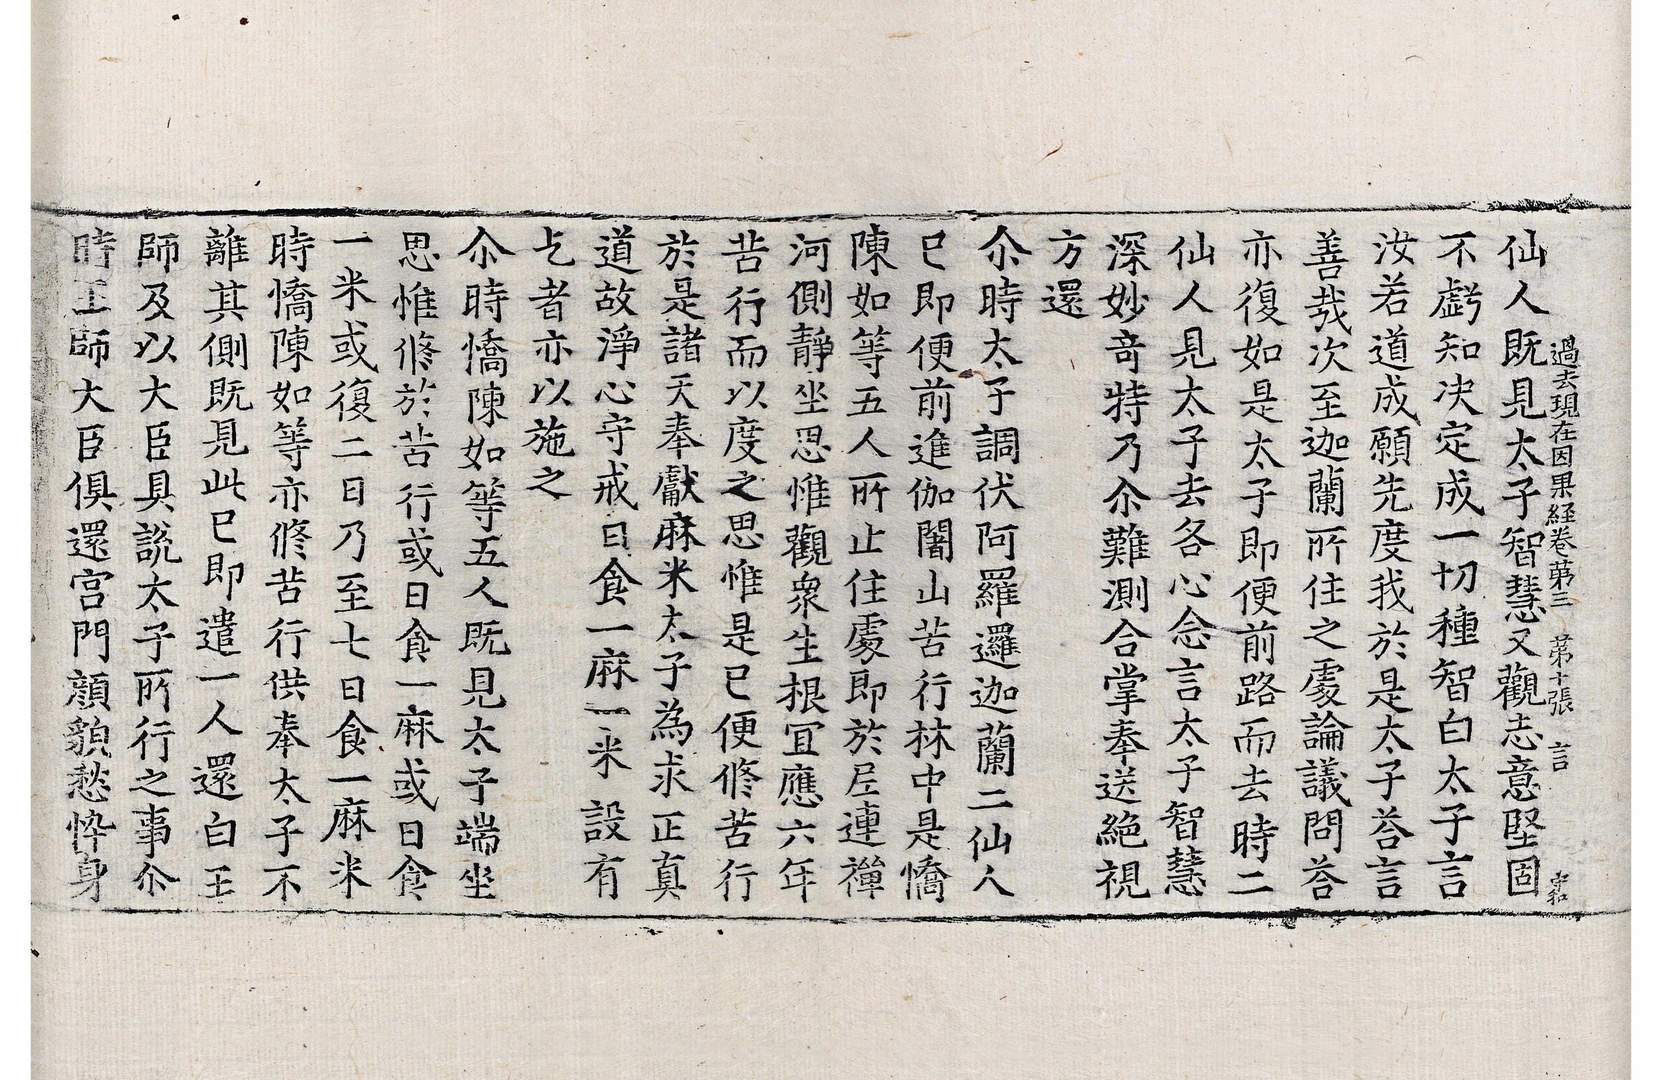 過去現在因果経卷苐三　苐十張　言
仙人既見太子智慧又觀志意堅固
不虧知决定成一切種智白太子言
汝若道成願先度我於是太子荅言
善哉次至迦蘭所住之處論議問荅
亦復如是太子即便前路而去時二
仙人見太子去各心念言太子智慧
深妙竒特乃尒難測合掌奉送絕視
方還
尒時太子調伏阿羅邏迦蘭二仙人
已即便前進伽闍山苦行林中是憍
陳如等五人所止住處即於尼連禪
河側靜坐思惟觀衆生根宜應六年
苦行而以度之思惟是已便修苦行
於是諸天奉獻麻米太子為求正真
道故淨心守戒日食一麻一米設有
乞者亦以施之
尒時憍陳如等五人既見太子端坐
思惟修於苦行或日食一麻或日食
一米或復二日乃至七日食一麻米
時憍陳如等亦修苦行供奉太子不
離其側既見此已即遣一人還白王
師及以大臣具說太子所行之事尒
時王師大臣俱還宮門顔貌愁悴身